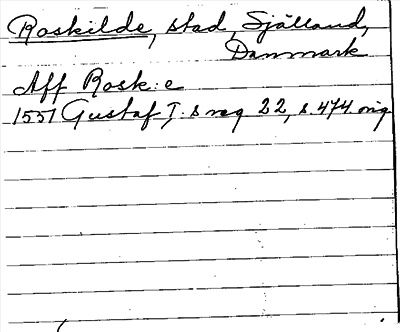 Roskilde, stad, Själland,
Danmark
Aff Rosk:e
1551 Gustaf I:s reg 22, s. 474. orig